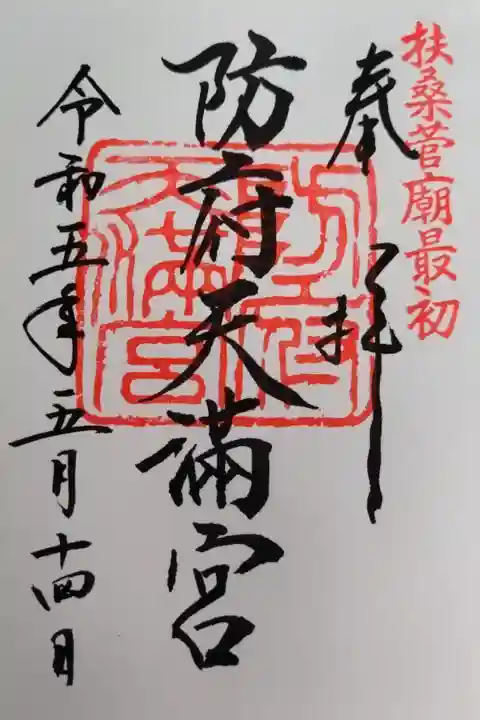 扶桑菅廟最初
奉拝
防府天満宮
防府天満宮
令和五年五月十四日